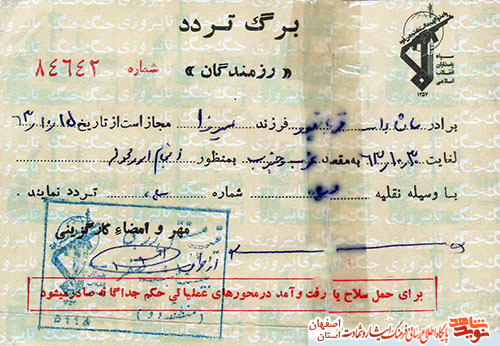 برگ تردد
« رزمندگان »
شماره ۸۴۶۴۲
سپاه
پاسداران
انقلاب
اسلامی
۱۳۵۷
برادر فرزند میرزا مجاز است از تاریخ ۶۳/۱۰/۱۵
لغایت ۶۳/۱۰/۳۰ به مقصد غرب و جنوب بمنظور انجام امور محوله
با وسیله نقلیه شماره تردد نمایند .
مهر و امضاء کارگزینی
برای حمل سلاح یا رفت و آمد در محورهای عملیاتی حکم جداگانه صادر میشود
جنگ جنگ تا پیروزی
نوید شاهد
پایگاه اطلاع رسانی فرهنگ ایثار و شهادت
استان اصفهان